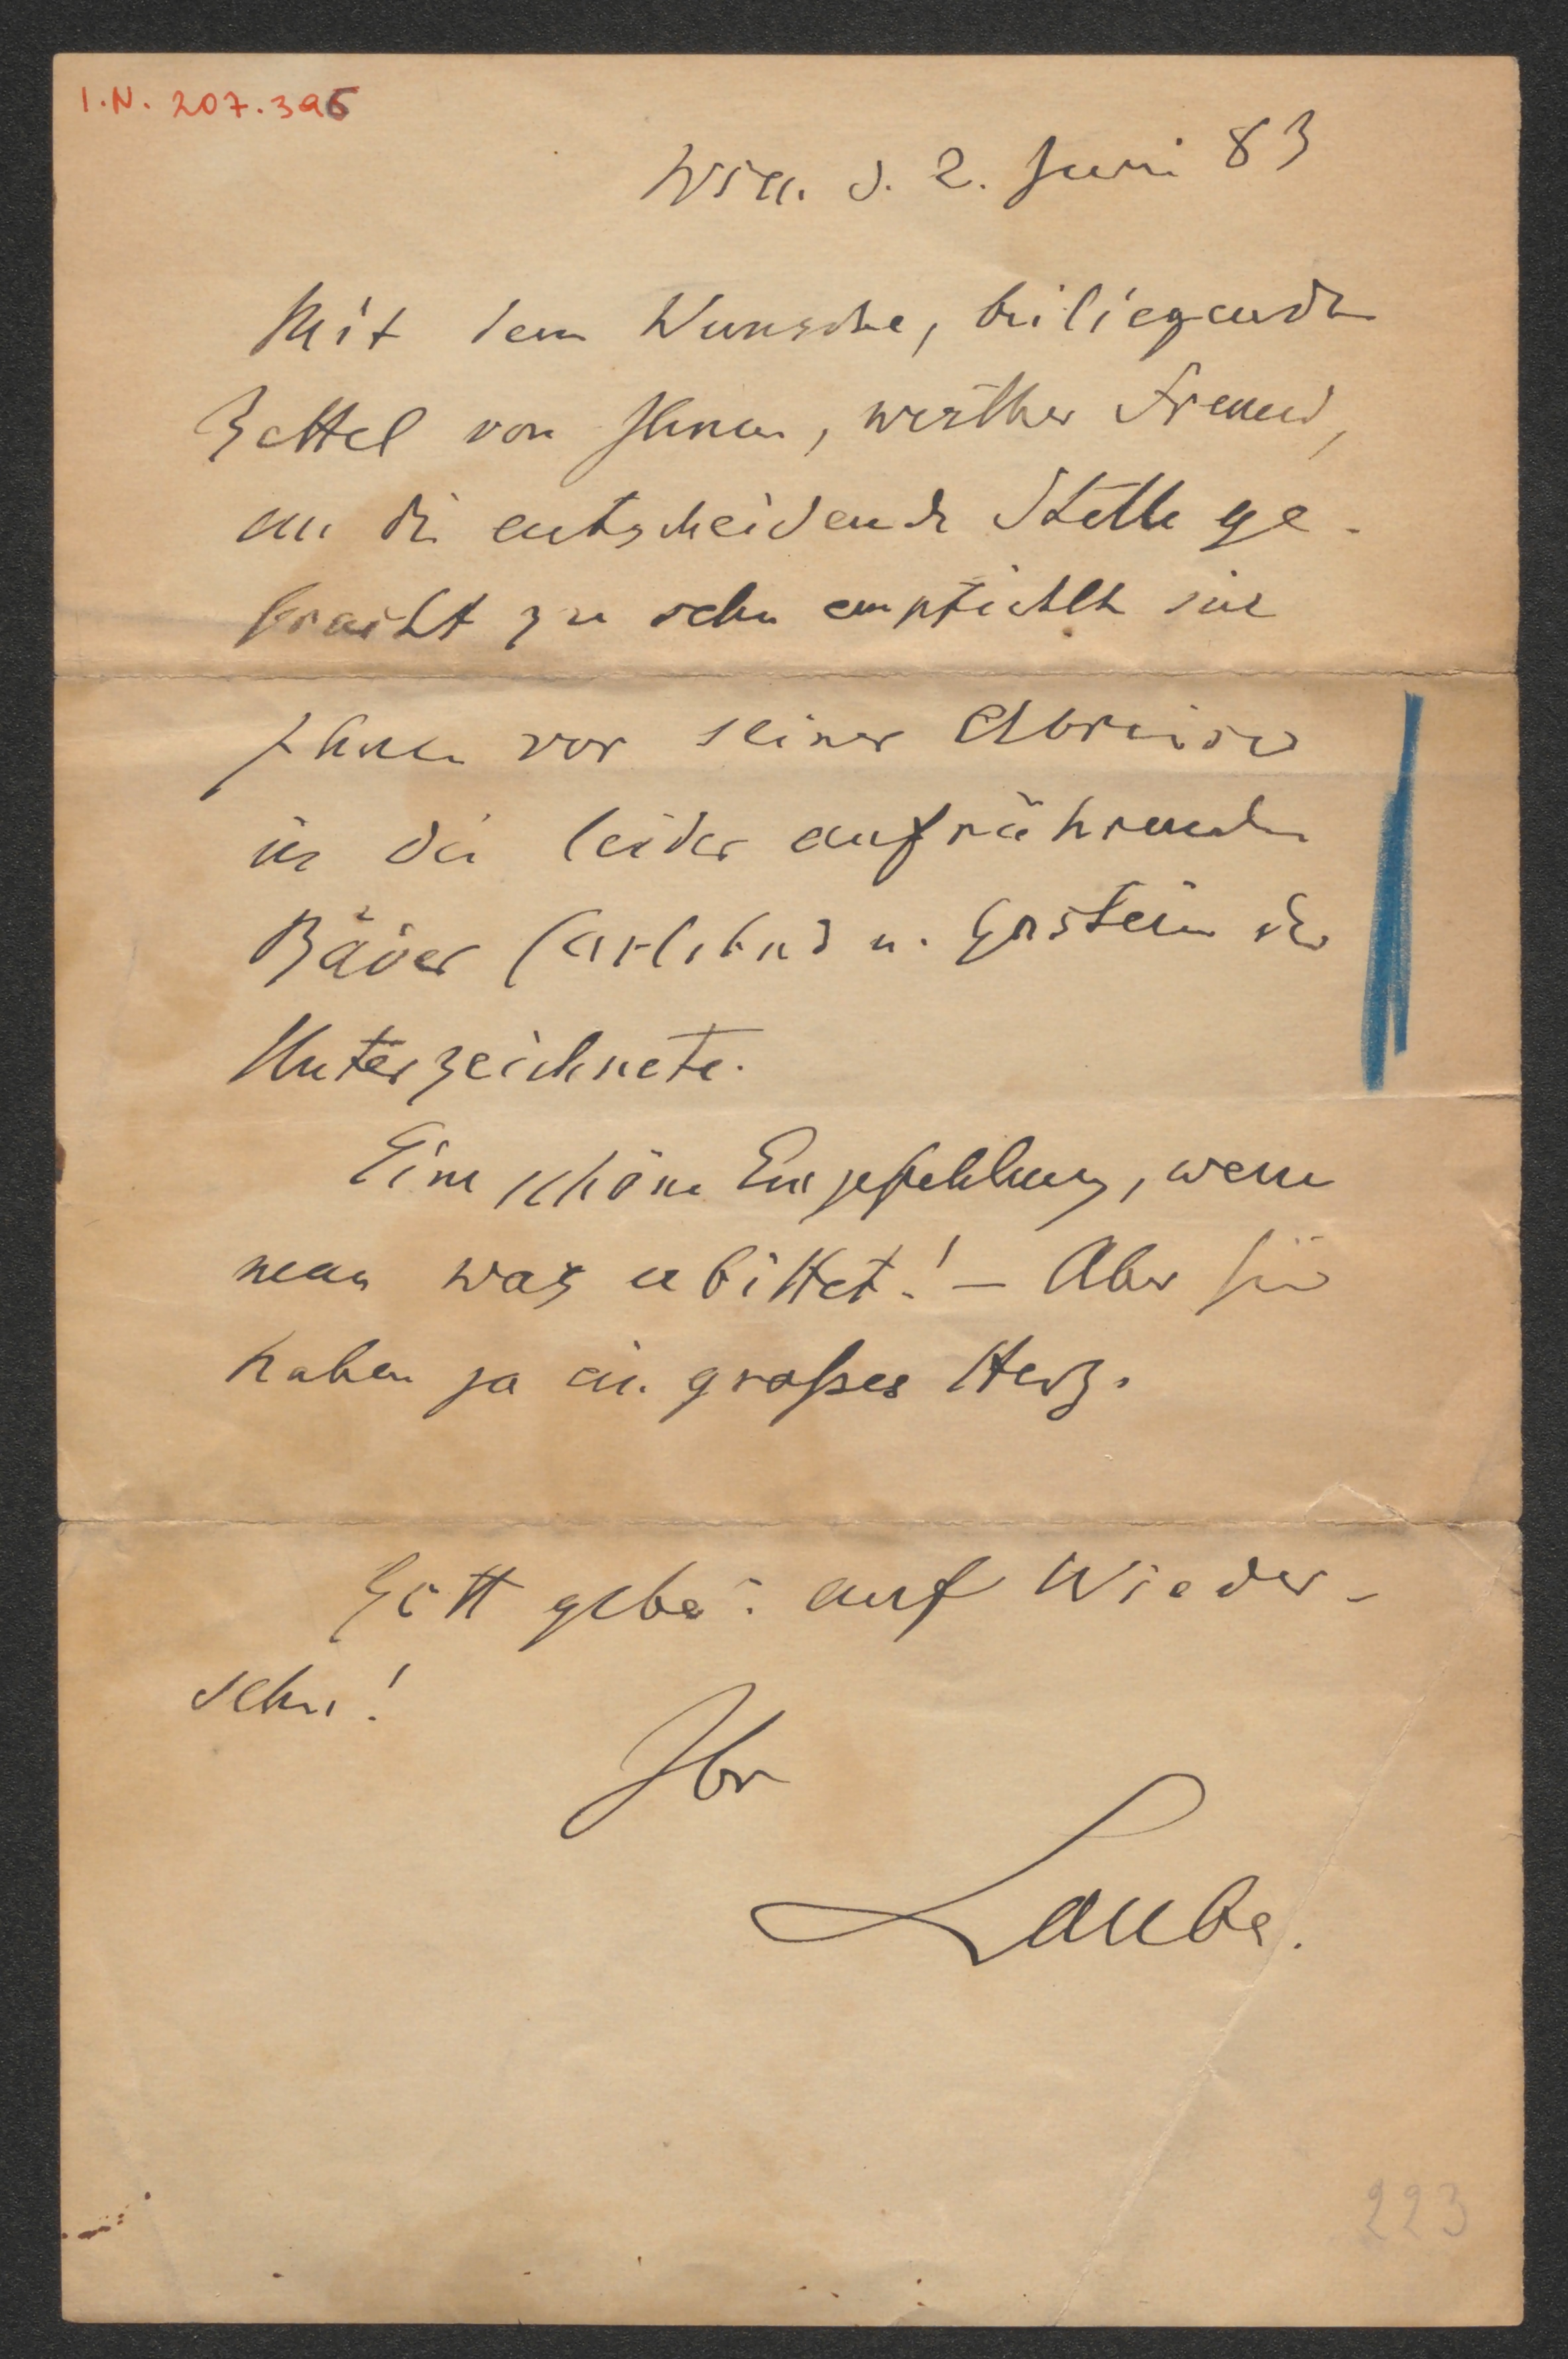 I.N. 207.395
Wien. d. 2. Juni 83
Mit dem Wunsche, beiliegende
Zettel von Ihnen, werther Freund,
an die entscheidende Stelle ge-
bracht zu sehn empfiehlt sich
Ihnen vor seiner Abreise
in die leider aufrührenden
Bäder Carlsbad u. Gastein der
Unterzeichnete.
Eine schöne Empfehlung, wenn
man was erbittet! – Aber Sie
haben ja ein großes Herz.
Gott gebe: auf Wieder-
sehn!
Ihr
Laube.
223